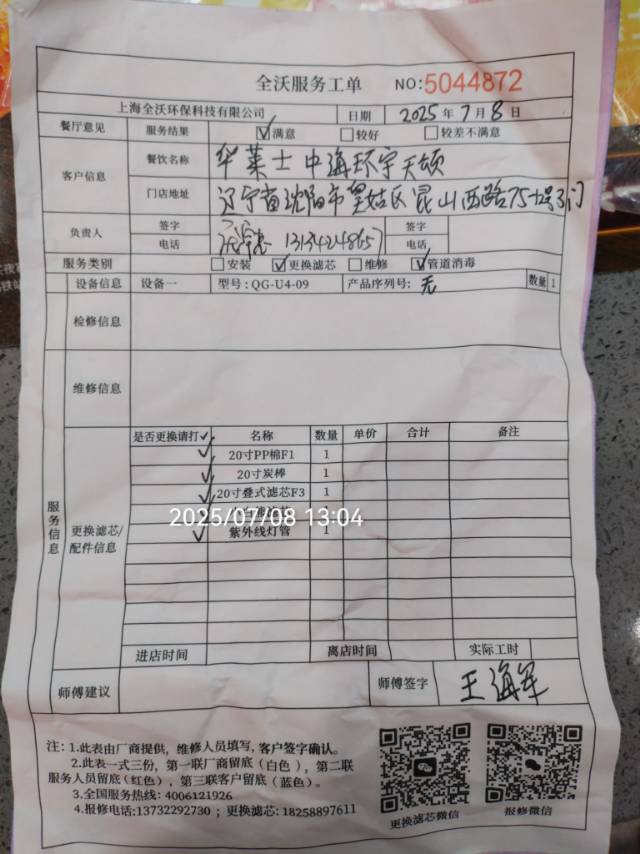 全沃服务工单 NO:5044872
上海全沃环保科技有限公司 日期 2025年7月8日
餐厅意见 服务结果 ☑满意 □较好 □较差不满意
客户信息 餐饮名称 华莱士中海环宇天颂
门店地址 辽宁省沈阳市皇姑区昆山西路75号3门
负责人 签字 签字
电话 13134214865 电话
服务类别 □安装 ☑更换滤芯 □维修 ☑管道消毒
设备信息 设备一 型号:QG-U4-09 产品序列号:无 数量 1
检修信息
维修信息
服务信息
更换滤芯/配件信息
是否更换请打✓ 名称 数量 单价 合计 备注
✓ 20寸PP棉F1 1
✓ 20寸炭棒 1
✓ 20寸叠式滤芯F3 1
2025/07/08 13:04
✓ 紫外线灯管 1
进店时间 离店时间 实际工时
师傅建议 师傅签字 王海军
注:1.此表由厂商提供,维修人员填写,客户签字确认。
2.此表一式三份,第一联厂商留底(白色),第二联
服务人员留底(红色),第三联客户留底(蓝色)。
3.全国服务热线:4006121926
4.报修电话:13732292730;更换滤芯:18258897611
更换滤芯微信 报修微信